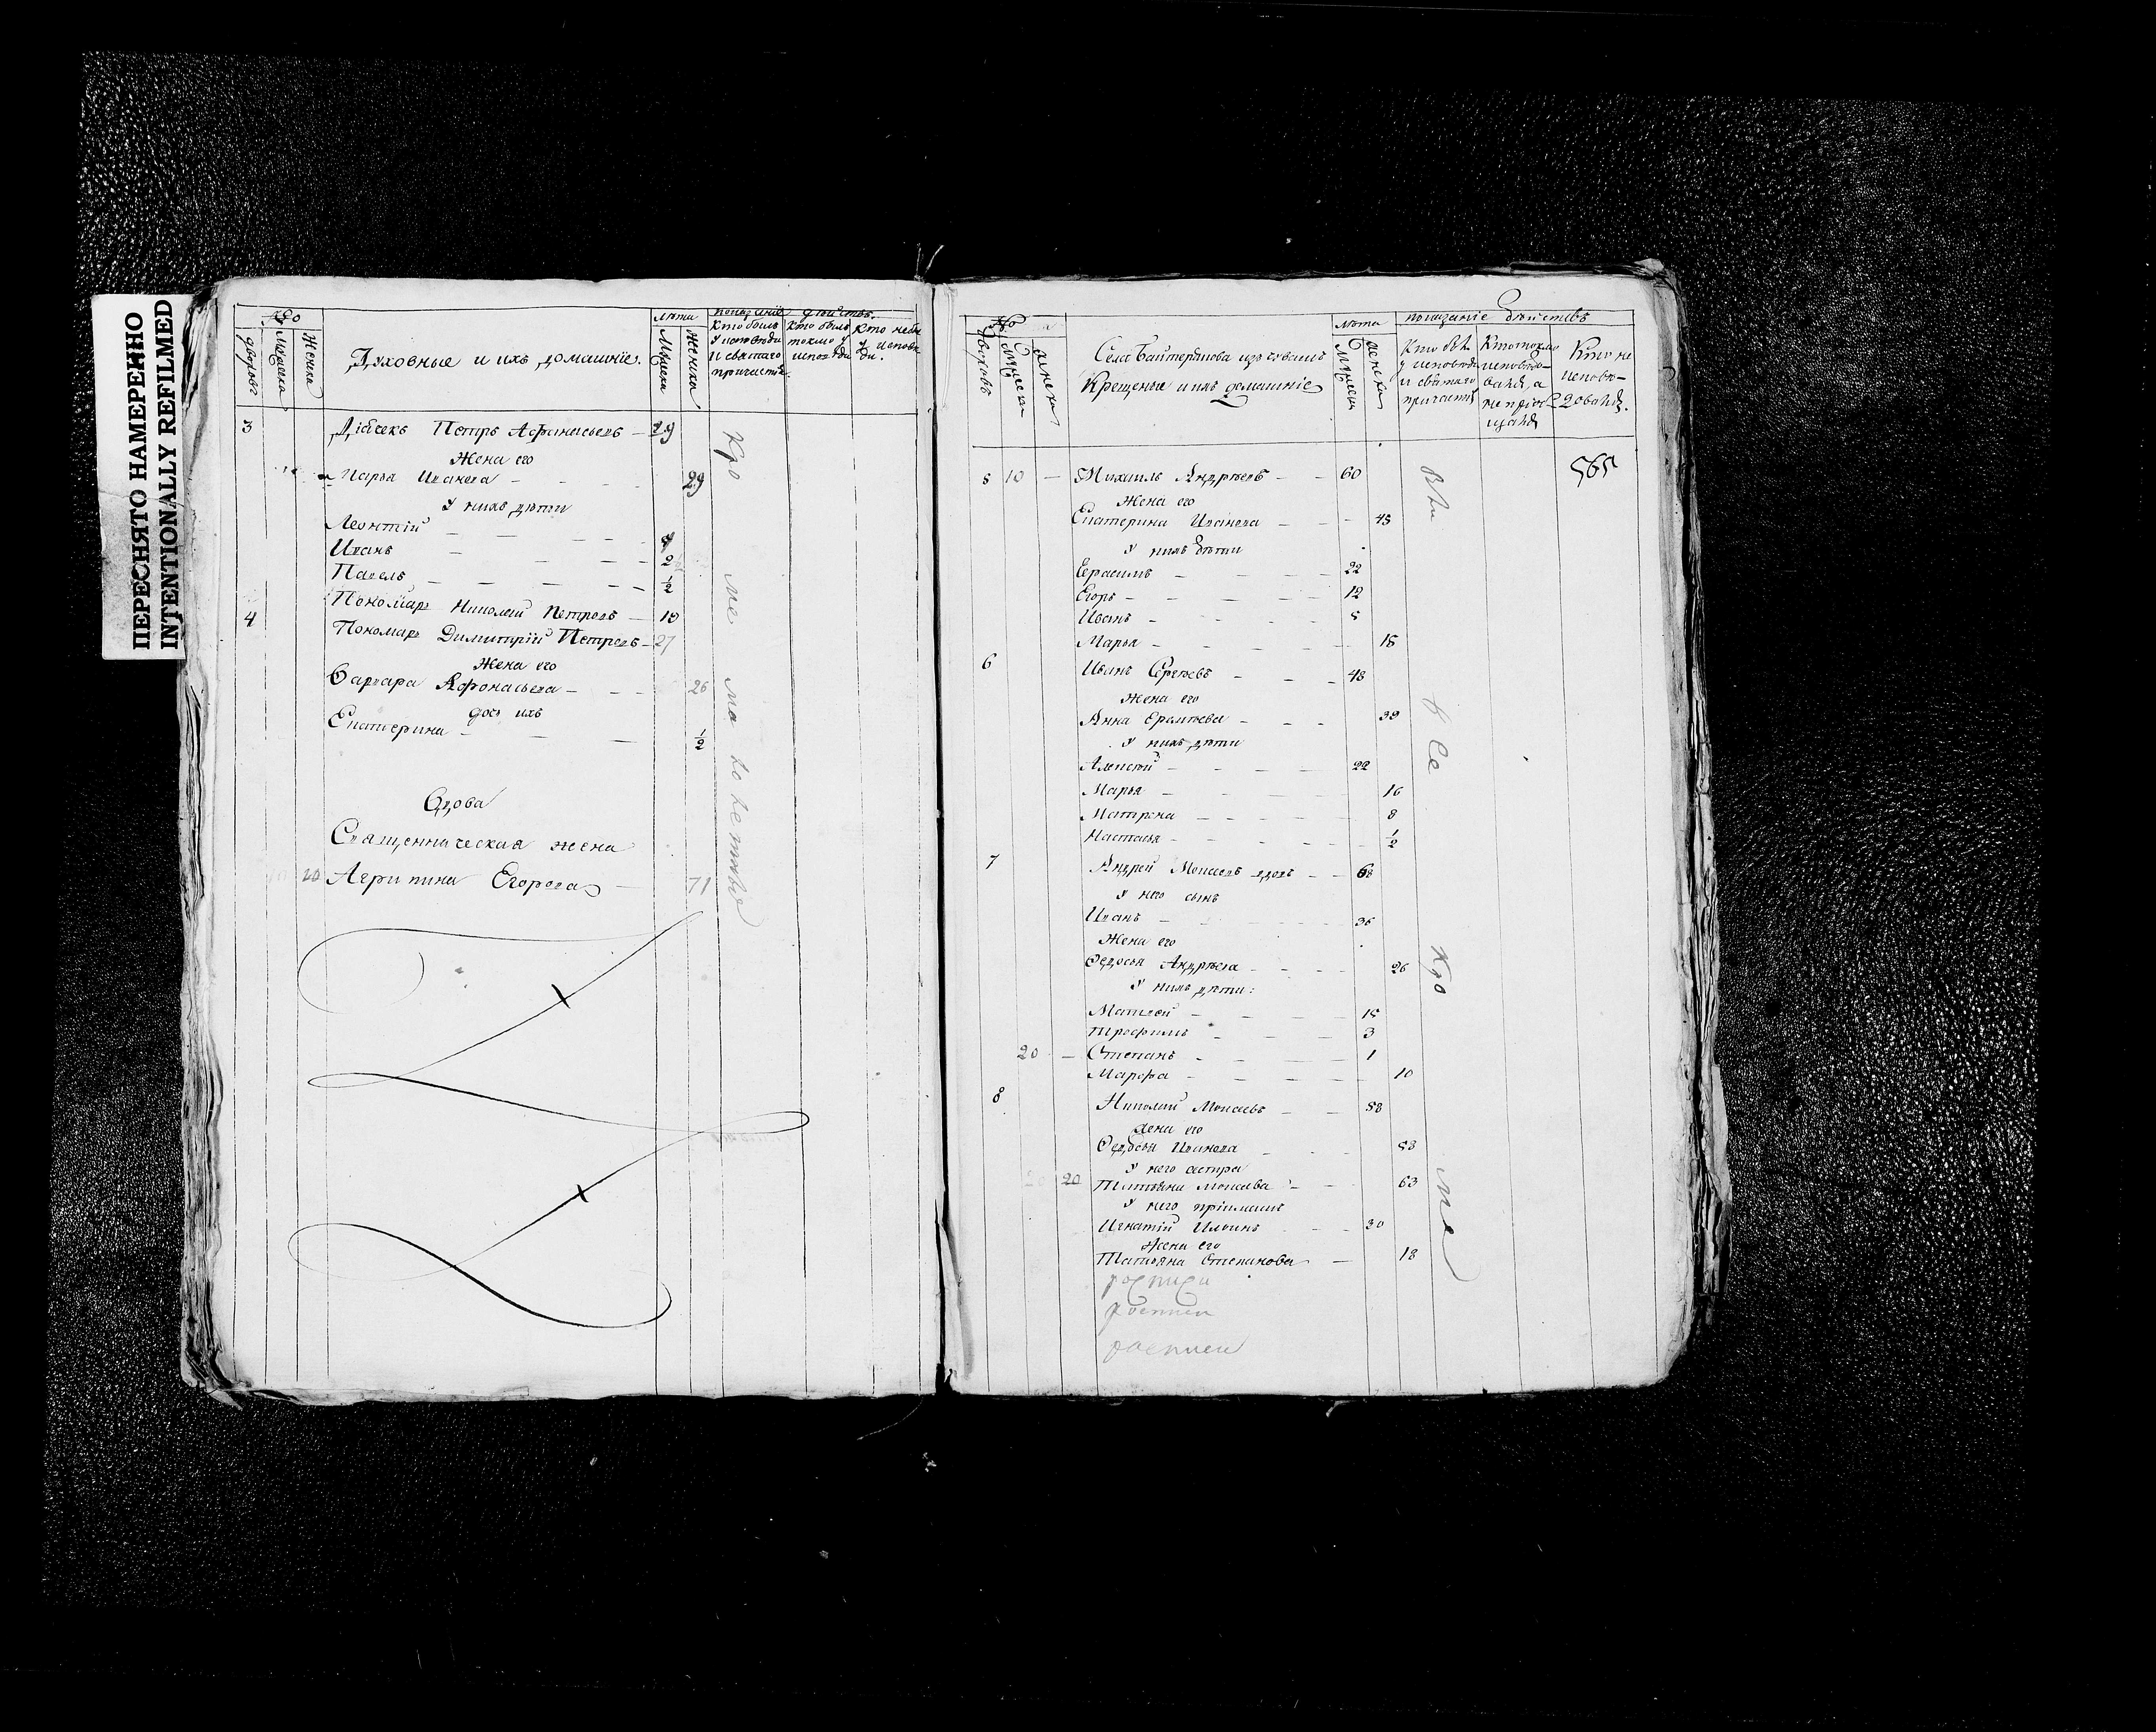 ПЕРЕСНЯТО НАМЕРЕННО
INTENTIONALLY REFILMED
№
дворовъ
Мужеска
Женска
Духовные и ихъ домашнїе.
лѣта
Мужеска
Женска
показанїе дѣйствъ.
Кто былъ
у исповѣди
и святаго
причастїя.
Кто былъ
токмо у
исповѣди
Кто небы
у исповѣ
ди.
3 Дїячекъ Петръ Афанасьевъ — 29
Жена его
Марья Иванова — 29
У нихъ дѣти
Леонтїй
Иванъ — 2
Павелъ — ½
Пономарь Николай Петровъ — 19
4 Пономарь Димитрїй Петровъ — 27
Жена его
Варвара Афонасьева — 26
дочь ихъ
Екатерина — ½
Вдова
Священническая жена
10 Агрипина Егорова — 71
Кро ме ма ло лет
№
Дворовъ
Мужеска
Женска
Села Байтерякова изъ чувашъ
Крещеные и ихъ домашнїе
лѣта
Мужеска
Женска
показанїе дѣйствъ
Кто былъ
у исповѣди
и святаго
причастїя
Кто токмо
исповѣдо-
вался, а
не прїоб-
щался
Кто не
исповѣ-
довался.
565
5 10 — Михаилъ Андрѣевъ — 60
Жена его
Екатерина Иванова — 45
У нихъ дѣти
Герасимъ — 22
Егоръ — 12
Иванъ — 5
Марья — 15
6 Иванъ Сергѣевъ — 48
Жена его
Анна Ермѣева — 39
У нихъ дѣти
Алексѣй — 22
Марья — 16
Матрена — 8
Настасья — ½
7 Андрей Моисеевъ вдовъ — 68
У него сынъ
Иванъ — 36
Жена его
Федосья Андрѣева — 26
У нихъ дѣти:
Матвей — 15
Трофимъ — 3
20 — Степанъ — 1
Марфа — 10
8 Николай Моисеевъ — 58
Жена его
Федосья Иванова — 53
У него сестра
20 Татьяна Моисеева — 63
У него прїемышъ
Игнатїй Ильинъ — 30
Жена его
Татьяна Степанова — 18
росписи
росписи
росписи
Бы
Все
Кро
ме